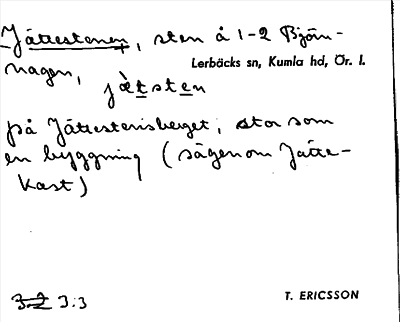 Jättestenen, sten å 1-2 Björn-
Lerbäcks sn, Kumla hd, Ör. l.
hagen,
jæ̀tsten
på Jättestensberget, stor som
en byggning (sägen om Jätte-
kast)
3:2 3:3
T. ERICSSON